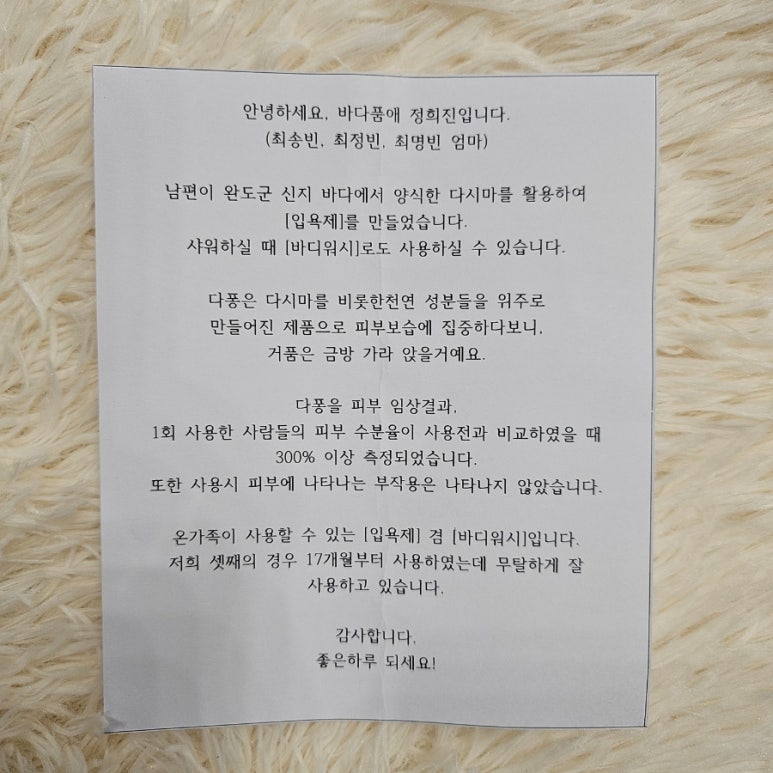 안녕하세요, 바다품애 정희진입니다.
(최송빈, 최정빈, 최명빈 엄마)
남편이 완도군 신지 바다에서 양식한 다시마를 활용하여
[입욕제]를 만들었습니다.
샤워하실 때 [바디워시]로도 사용하실 수 있습니다.
다퐁은 다시마를 비롯한천연 성분들을 위주로
만들어진 제품으로 피부보습에 집중하다보니,
거품은 금방 가라 앉을거예요.
다퐁을 피부 임상결과,
1회 사용한 사람들의 피부 수분율이 사용전과 비교하였을 때
300% 이상 측정되었습니다.
또한 사용시 피부에 나타나는 부작용은 나타나지 않았습니다.
온가족이 사용할 수 있는 [입욕제] 겸 [바디워시]입니다.
저희 셋째의 경우 17개월부터 사용하였는데 무탈하게 잘
사용하고 있습니다.
감사합니다.
좋은하루 되세요!